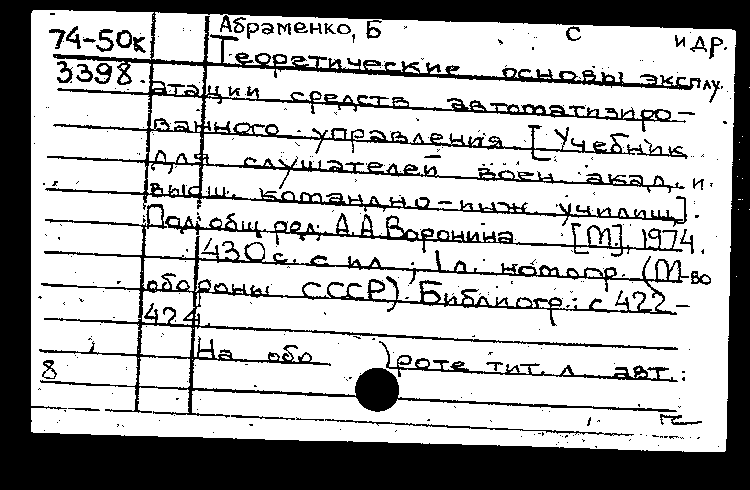 Абраменко, Б С и др.
74-50к
3398.
Теоретические основы эксплу
атации средств автоматизиро-
ванного управления [Учебник
для слушателей воен акад. и.
высш. командно-инж училищ].
Под общ ред. А.А Воронина [М], 1974.
430 с. с ил; 1 л. номогр. (М-во
обороны СССР). Библиогр.: с 422-
424.
На обо роте тит. л авт.:
8